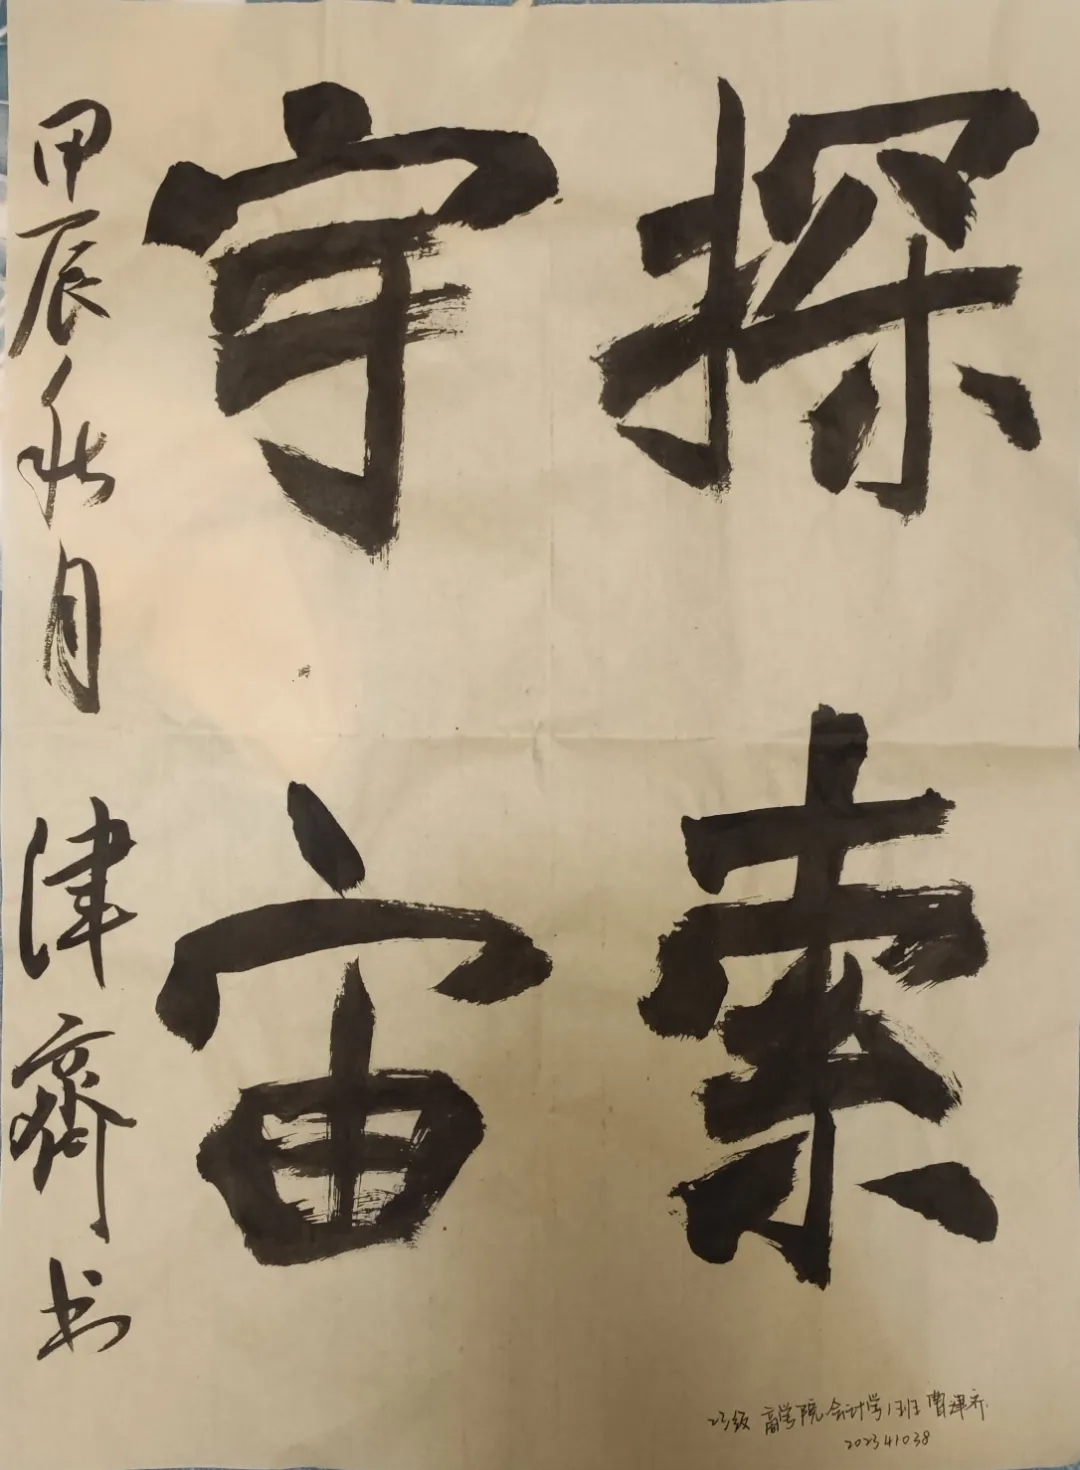 探索
宇宙
甲辰秋月 津齊书
23级 商学院 会计学1班 曹津齐
202341038